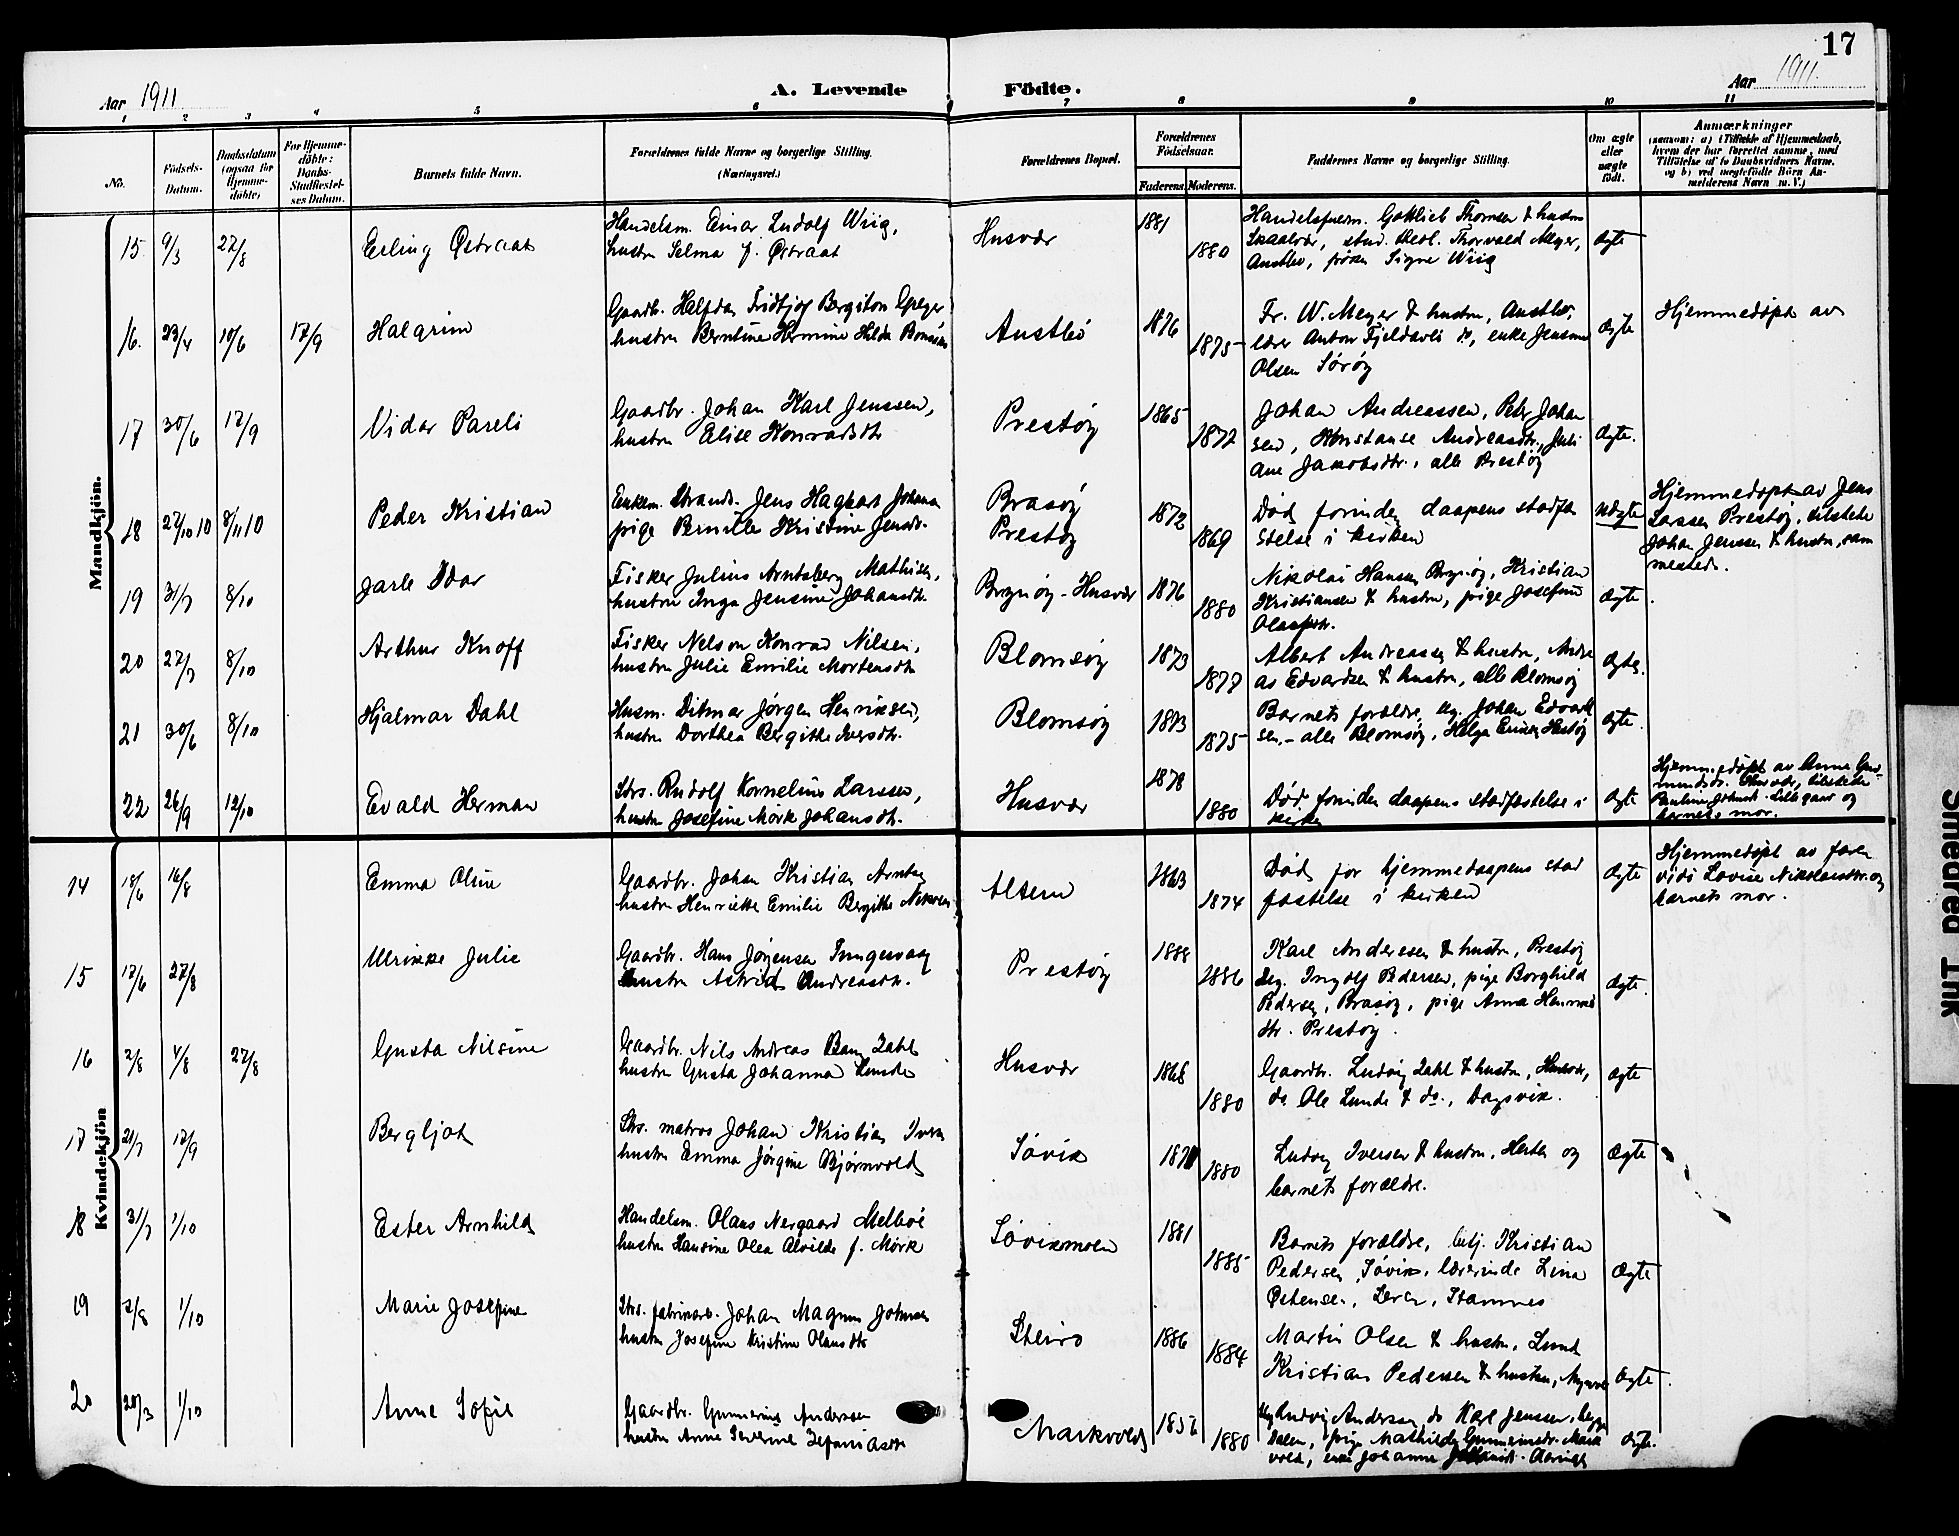 17
Aar 1911.
A. Levende Födte.
Aar 1911.
1 2 3 4 5 6 7 8 9 10 11
No.
Födsels-Datum.
Daabsdatum (ogsaa for Hjemme-döbte)
For Hjemme-döbte: Daabs-Stadfæstel-ses Datum.
Barnets fulde Navn.
Forældrenes fulde Navne og borgerlige Stilling. (Næringsvei.)
Forældrenes Bopæl.
Forældrenes Födselsaar.
Faderens. Moderens.
Faddernes Navne og borgerlige Stilling.
Om ægte eller uægte födt.
Anmærkninger
(saasom: a) i Tilfælde af Hjemmedaab, hvem der har forrettet samme, med Tilføielse af to Daabsvidners Navne. og b) ved uægtefödte Börn An-melderens Navn m. V.)
Mandkjön.
15. 9/3 27/8 Erling Østraat
Handelsm. Einar Ludolf Wiig,
hustru Selma f. Østraat
Husvær 1881 1880
Handelsfuldm. Gottlieb Thomsen & hustru
Skaalvær, stud. theol. Thorvald Meyer,
Austbø, frøken Signe Wiig
ægte
16. 23/4 10/6 17/9 Halgrim
Gaardbr. Halfdan Fridtjof Bergiton Greger
hustru Berntine Hermine Hilda
Austbø 1876 1875
Fr. W. Meyer & hustru, Austbø,
lærer Anton Fjeldavli do, enke Jensine
Olsen Sørøy
ægte
Hjemmedøpt av
17 30/6 17/9 Vidar Pareli
Gaardbr. Johan Karl Jenssen,
hustru Elise Konradsdtr
Prestøy 1865 1872
Johan Andreassen, Peter Johan
sen, Konstanse Andreasdtr., Juli
ane Jakobsdtr., alle Prestøy
ægte.
18 27/10 10 8/11 10 Peder Kristian
Enkem. Strands. Jens Hagbart Johans
pige Pernille Kristine Jensdtr.
Brasøy
Prestøy
1872 1869
Død forinden daapens stadfæ
stelse i kirken
uægte
Hjemmedøpt av Jens
Larssen Prestøy, tilstede
Johan Jenssen & hustru, sam
mesteds.
19 31/7 8/10 Jarle Ivar
Fisker Julius Arntsberg Mathisen,
hustru Inga Jensine Johansdtr.
Brynøy-Husvær 1876 1880
Nikolai Hansen Brynøy, Kristian
Kristiansen & hustru, pige Josefine
ægte
20 27/7 8/10 Arthur Knoff
Fisker Nelson Konrad Nilsen,
hustru Julie Emilie Mortensdtr
Blomsøy 1873 1877
Albert Andreassen & hustru, Andre
as Edvardsen & hustru, alle Blomsøy
ægte.
21 30/6 8/10 Hjalmar Dahl
Husm. Ditmar Jørgen Henriksen,
hustru Dorthea Bergitte Iversdtr.
Blomsøy 1873 1875
Barnets forældre, ug. Johan Edvard
sen, - alle Blomsøy, Helga Eriksen Hestøy
ægte.
22 26/9 12/10 Evald Herman
Strs. Rudolf Kornelius Larssen,
hustru Josefine Mørk Johansdtr.
Husvær 1878 1880
Død forinden daapens stadfæstelse i
kirken
ægte
Hjemmedøpt av Anne Gud-
mundsdtr. Husvær, tilstede
Pauline Johansd. Lillegaar og
barnets mor.
Kvindekjön
14 18/6 16/8 Emma Oline
Gaardbr. Johan Kristian Arntsen
hustru Henriette Emilie Bergitte
Alstern 1863 1874
Død før hjemmedaapens stad
fæstelse i kirken
ægte
Hjemmedøpt av faren
vidn Lovise Nikolaisdtr. og
barnets mor.
15 17/6 27/8 Ulrikke Julie
Gaardbr. Hans Jørgensen Tungesvaag
hustru Astrid Andreasdtr.
Prestøy 1888 1886
Karl Anderssen & hustru, Prestøy
ug. Ingolf Pedersen, pige Borghild
Pedersen, Brasøy, pige Anna Henriks
dtr. Prestøy.
ægte.
16 2/8 4/8 27/8 Gusta Nilsine
Gaardbr. Nils Andreas Bang Zahl
hustru Gusta Johanna Lunde
Husvær 1868 1880
Gaardbr. Ludvig Zahl & hustru, Husvær,
do Ole Lunde & do., Dagsvik.
ægte
17 21/7 17/9 Bergljot
Strs. matros Johan Kristian Ivers
hustru Emma Jørgine Bjørnvold
Søvik 1880
Ludvig Iversen & hustru, og
barnets forældre.
ægte
18 31/7 1/10 Ester Arnhild
Handelsm. Olaus Nergaard Melbøe
hustru Hansine Olea Alvilde f. Mørk
Søvikmoen 1881 1885
Barnets forældre, betj. Kristian
Pedersen, Søvik, lærerinde Lina
Østensen, Leren, Stamnes
ægte
19 2/8 1/10 Marie Josefine
Strs. fabrikarb. Johan Magnus Johnsen
hustru Josefine Kristine Olausdtr
Steiro 1886 1884
Martin Olsen & hustru, Lund
Kristian Pedersen & hustru,
ægte.
20 20/3 1/10 Anne Sofie
Gaardbr. Gunnerius Anderssen
hustru Anne Severine Zefaniasdtr
Markvold 1856 1880
Ug Ludvig Anderssen, do Karl Jenssen, begge
Dalen, pige Mathilde Gunneriusdtr. Mark
vold, enke Johanne
ægte.
Smeared Ink